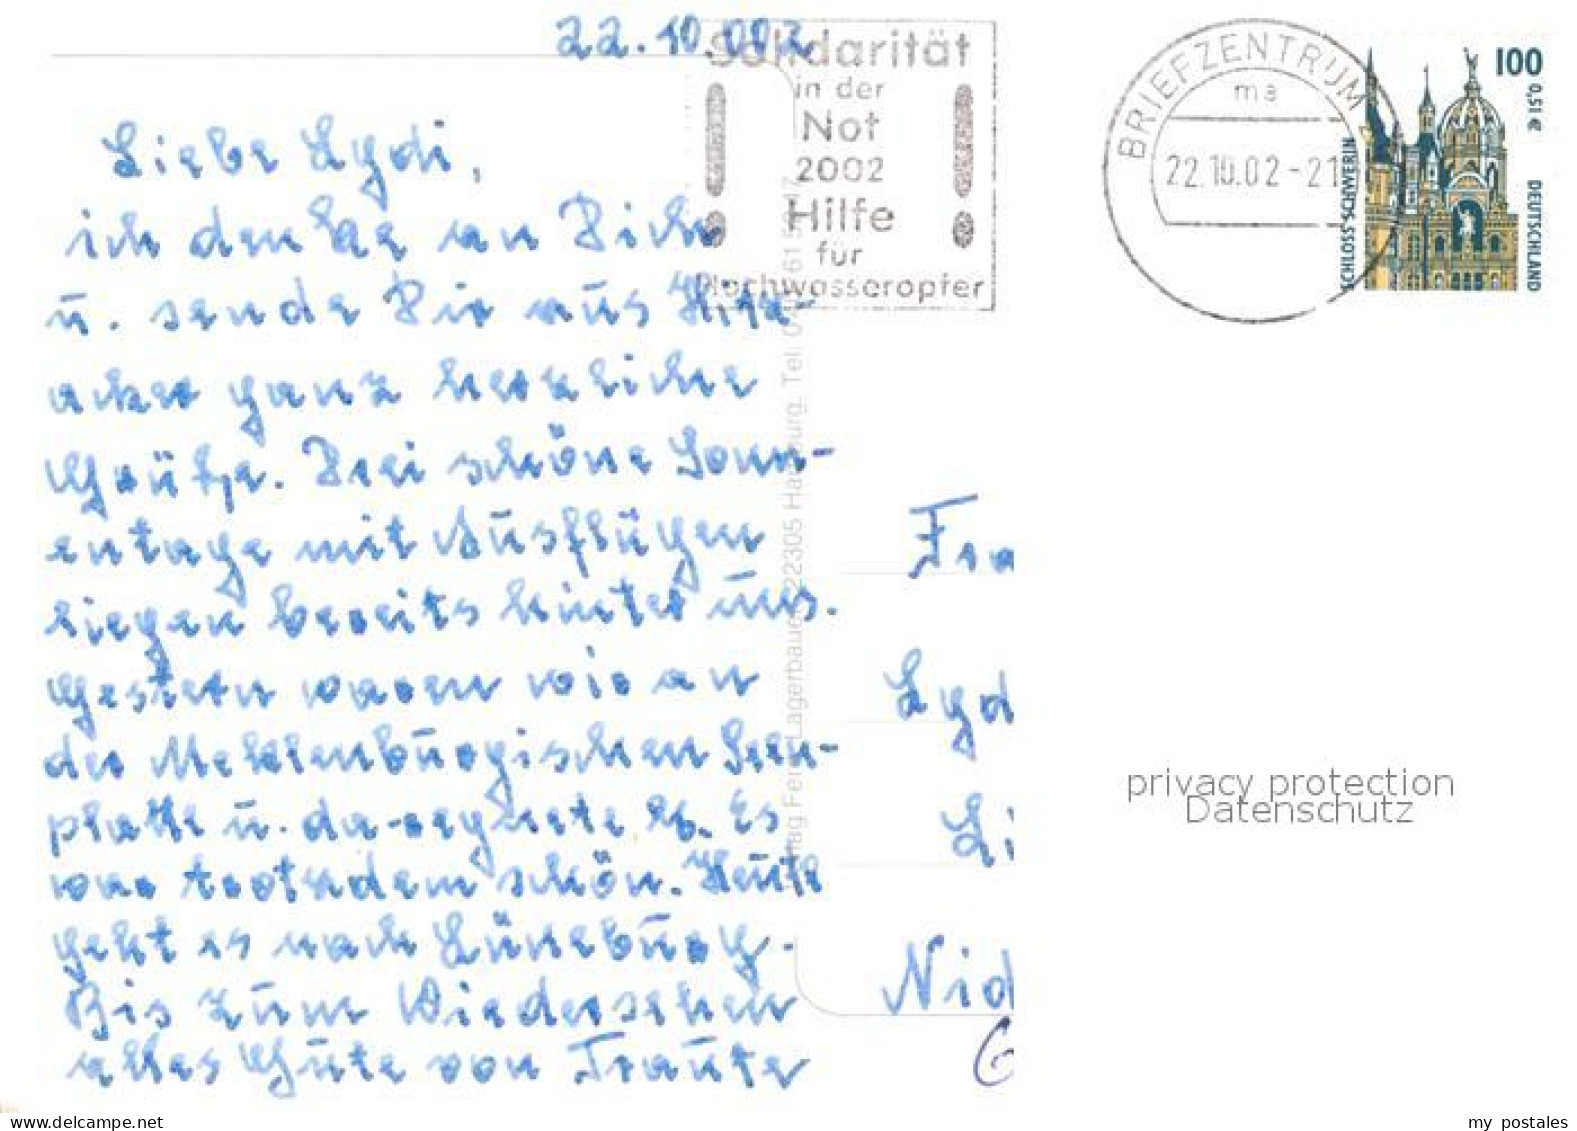 22.10.002
Solidarität
in der
Not
2002
Hilfe
für
Hochwasseropfer
BRIEFZENTRUM
ma
22.10.02-21
100
0,51 €
SCHLOSS SCHWERIN
DEUTSCHLAND
Liebe Lydi,
ich denke an Dich
u. sende Dir aus Hitz-
acker ganz herzliche
Grüße. Drei schöne Sonn-
entage mit Ausflügen
liegen bereits hinter uns.
Gestern waren wir an
der Mecklenburgischen Seen-
platte u. da regnete es. Es
war trotzdem schön. Heute
geht es nach Lüneburg.
Bis zum Wiedersehen
alles Gute von Traute
Lagerbauer, 22305 Hamburg, Tel.
Fra
Lyd
Li
Nid
G
privacy protection
Datenschutz
www.delcampe.net
my_postales